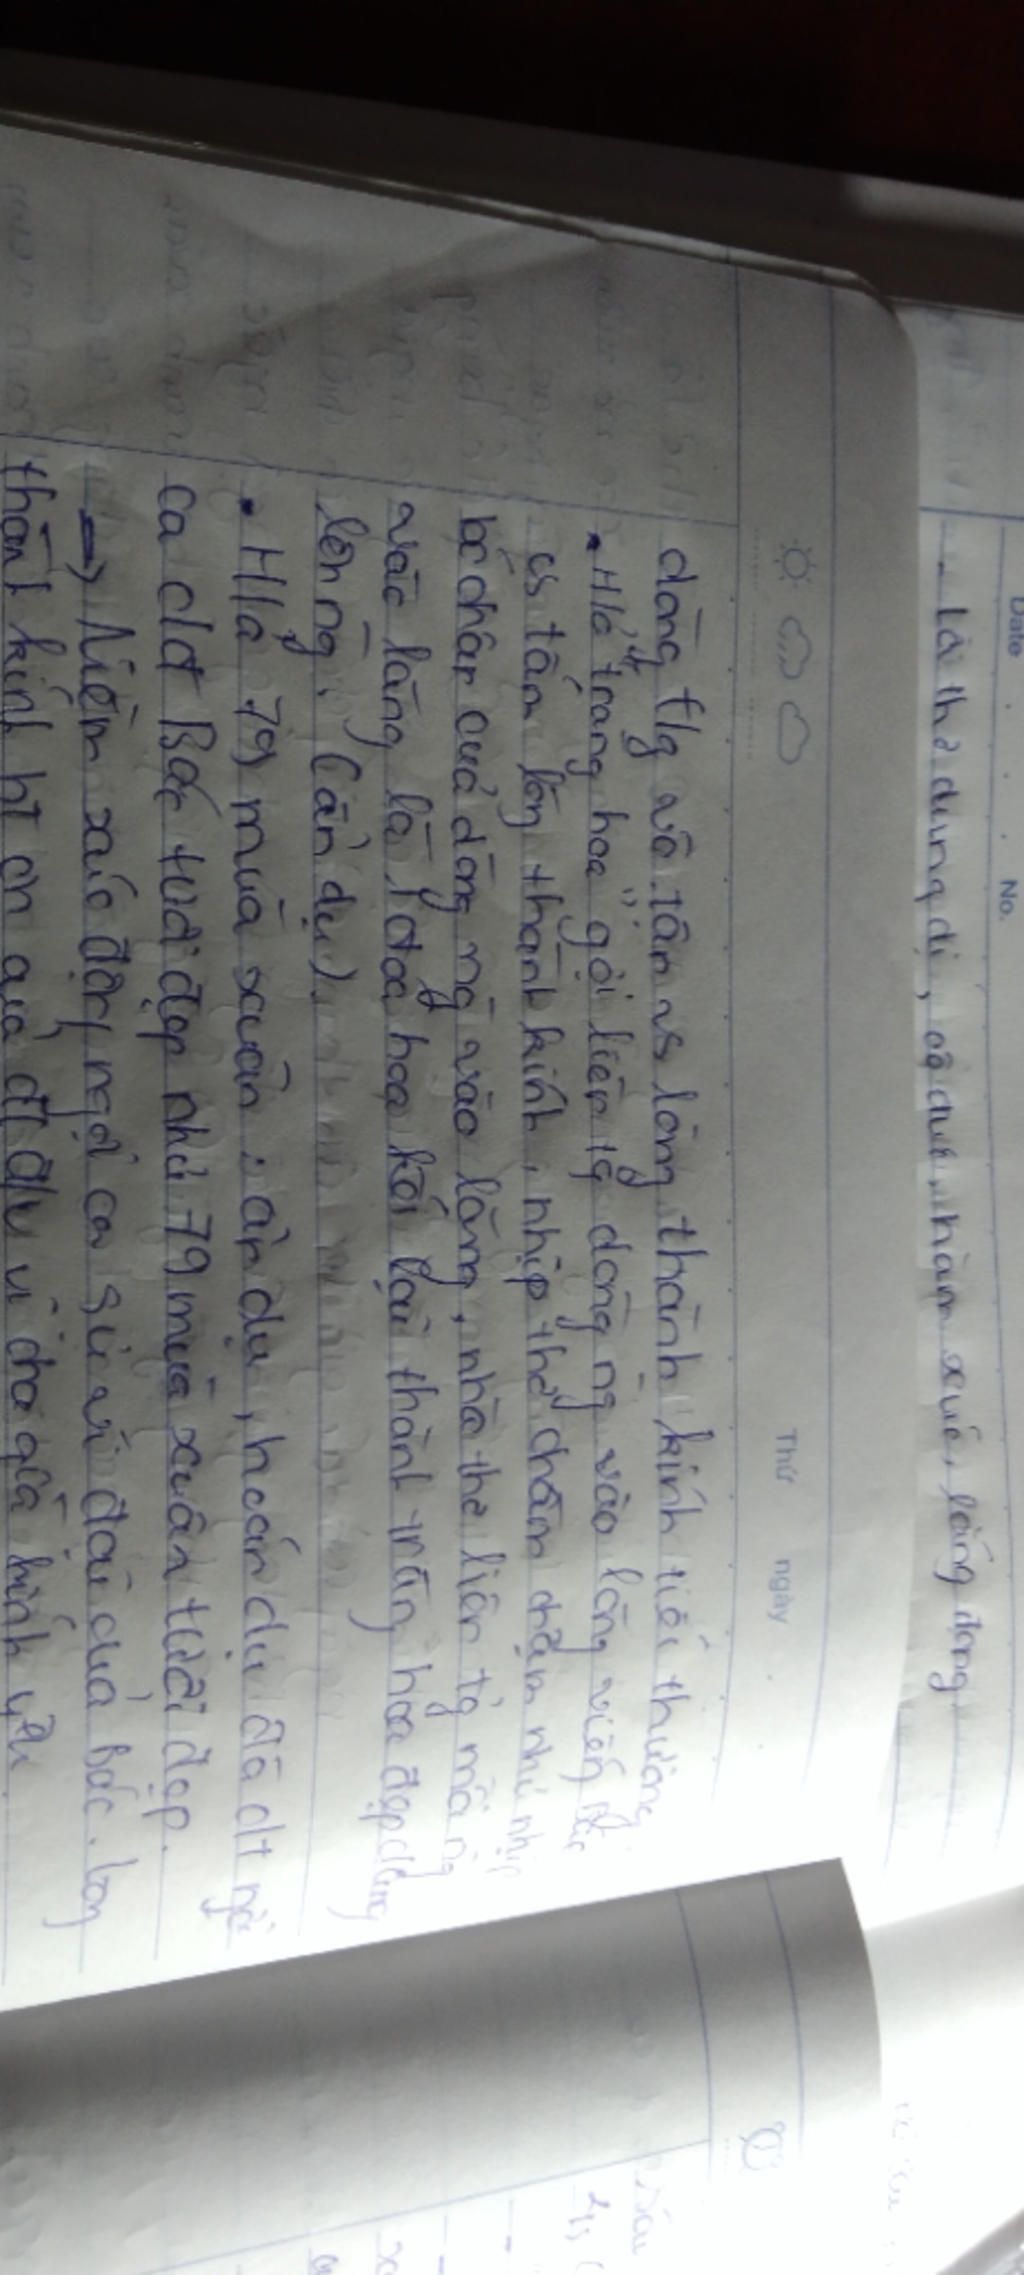 Date No.
- Lời thơ dung dị, cô đúc, hàm xúc, lắng đọng
Thứ ngày
dòng tg vô tận vs lòng thành kính tiếc thương
• H/ả "tràng hoa" gợi liên tg dòng ng vào lăng viếng Bác
vs tấm lòng thành kính, nhịp thơ chầm chậm như nhịp
bc chân của dòng ng vào lăng, nhà thơ liên tg mỗi ng
vào lăng là 1 đoá hoa kết lại thành tràng hoa đẹp dâng
lên ng. (ẩn dụ).
• H/ả 79 mùa xuân: ẩn dụ, hoán dụ
ca cđ Bác tươi đẹp như 79 mùa xuân tươi đẹp.
→ Niềm xúc động ngợi ca sự vĩ đại của Bác, lòng
thành kính bt ơn của đ vị cha già kính yêu